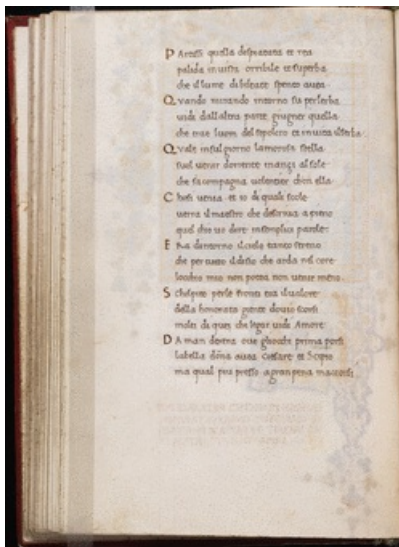 P Artissi quella despiatata et rea
palida in uista orribile et superba
che il lume di beltate spento auea
Q Vando mirando intorno su per lerba
uidi dallaltra parte giugner quella
che trae luom del sepolcro et in uita il serba
Q Vale in sul giorno lamorosa stella
suol uenir doriente inançi al sole
che sacompagna uolentier chon ella
C hosi uenia et io di quali scole
uerra il maestro che descriua a pieno
quel chio uo dire in semplici parole
E Ra dintorno il cielo tanto sereno
che per tutto il disio che ardea nel core
locchio mio non potea non uenir meno
S
della honorata gente douio scorsi
molti di quei che legar uidi Amore
D A man dextra oue gliocchi prima porsi
labella dõna auea Cesare et Scipio
ma qual piu presso a gran pena maccorsi